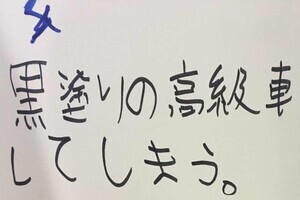 黒塗りの高級車
してしまう。